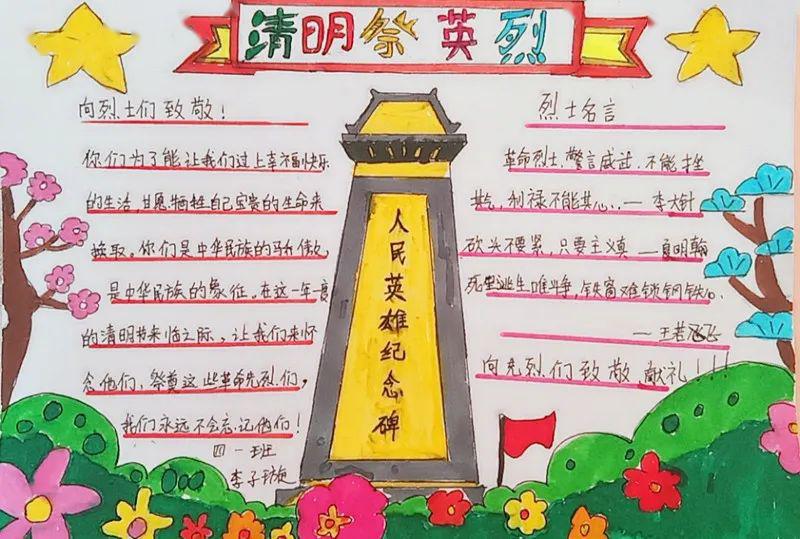 清明祭英烈
向烈士们致敬!
你们为了能让我们过上幸福快乐
的生活,甘愿牺牲自己宝贵的生命来
换取。你们是中华民族的
是中华民族的象征。在这一年一度
的清明节来临之际,让我们来怀
念他们,祭奠这些革命先烈们,
我们永远不会忘记你们!
四一班
李子
人民英雄纪念碑
烈士名言
革命烈士,警言威武,不能挫
其气,利禄不能其心..—李大针
砍头不要紧,只要主义真—夏明翰
死里逃生唯斗争,铁窗难锁钢铁心
—王若飞
向先烈们致敬献礼!!!!